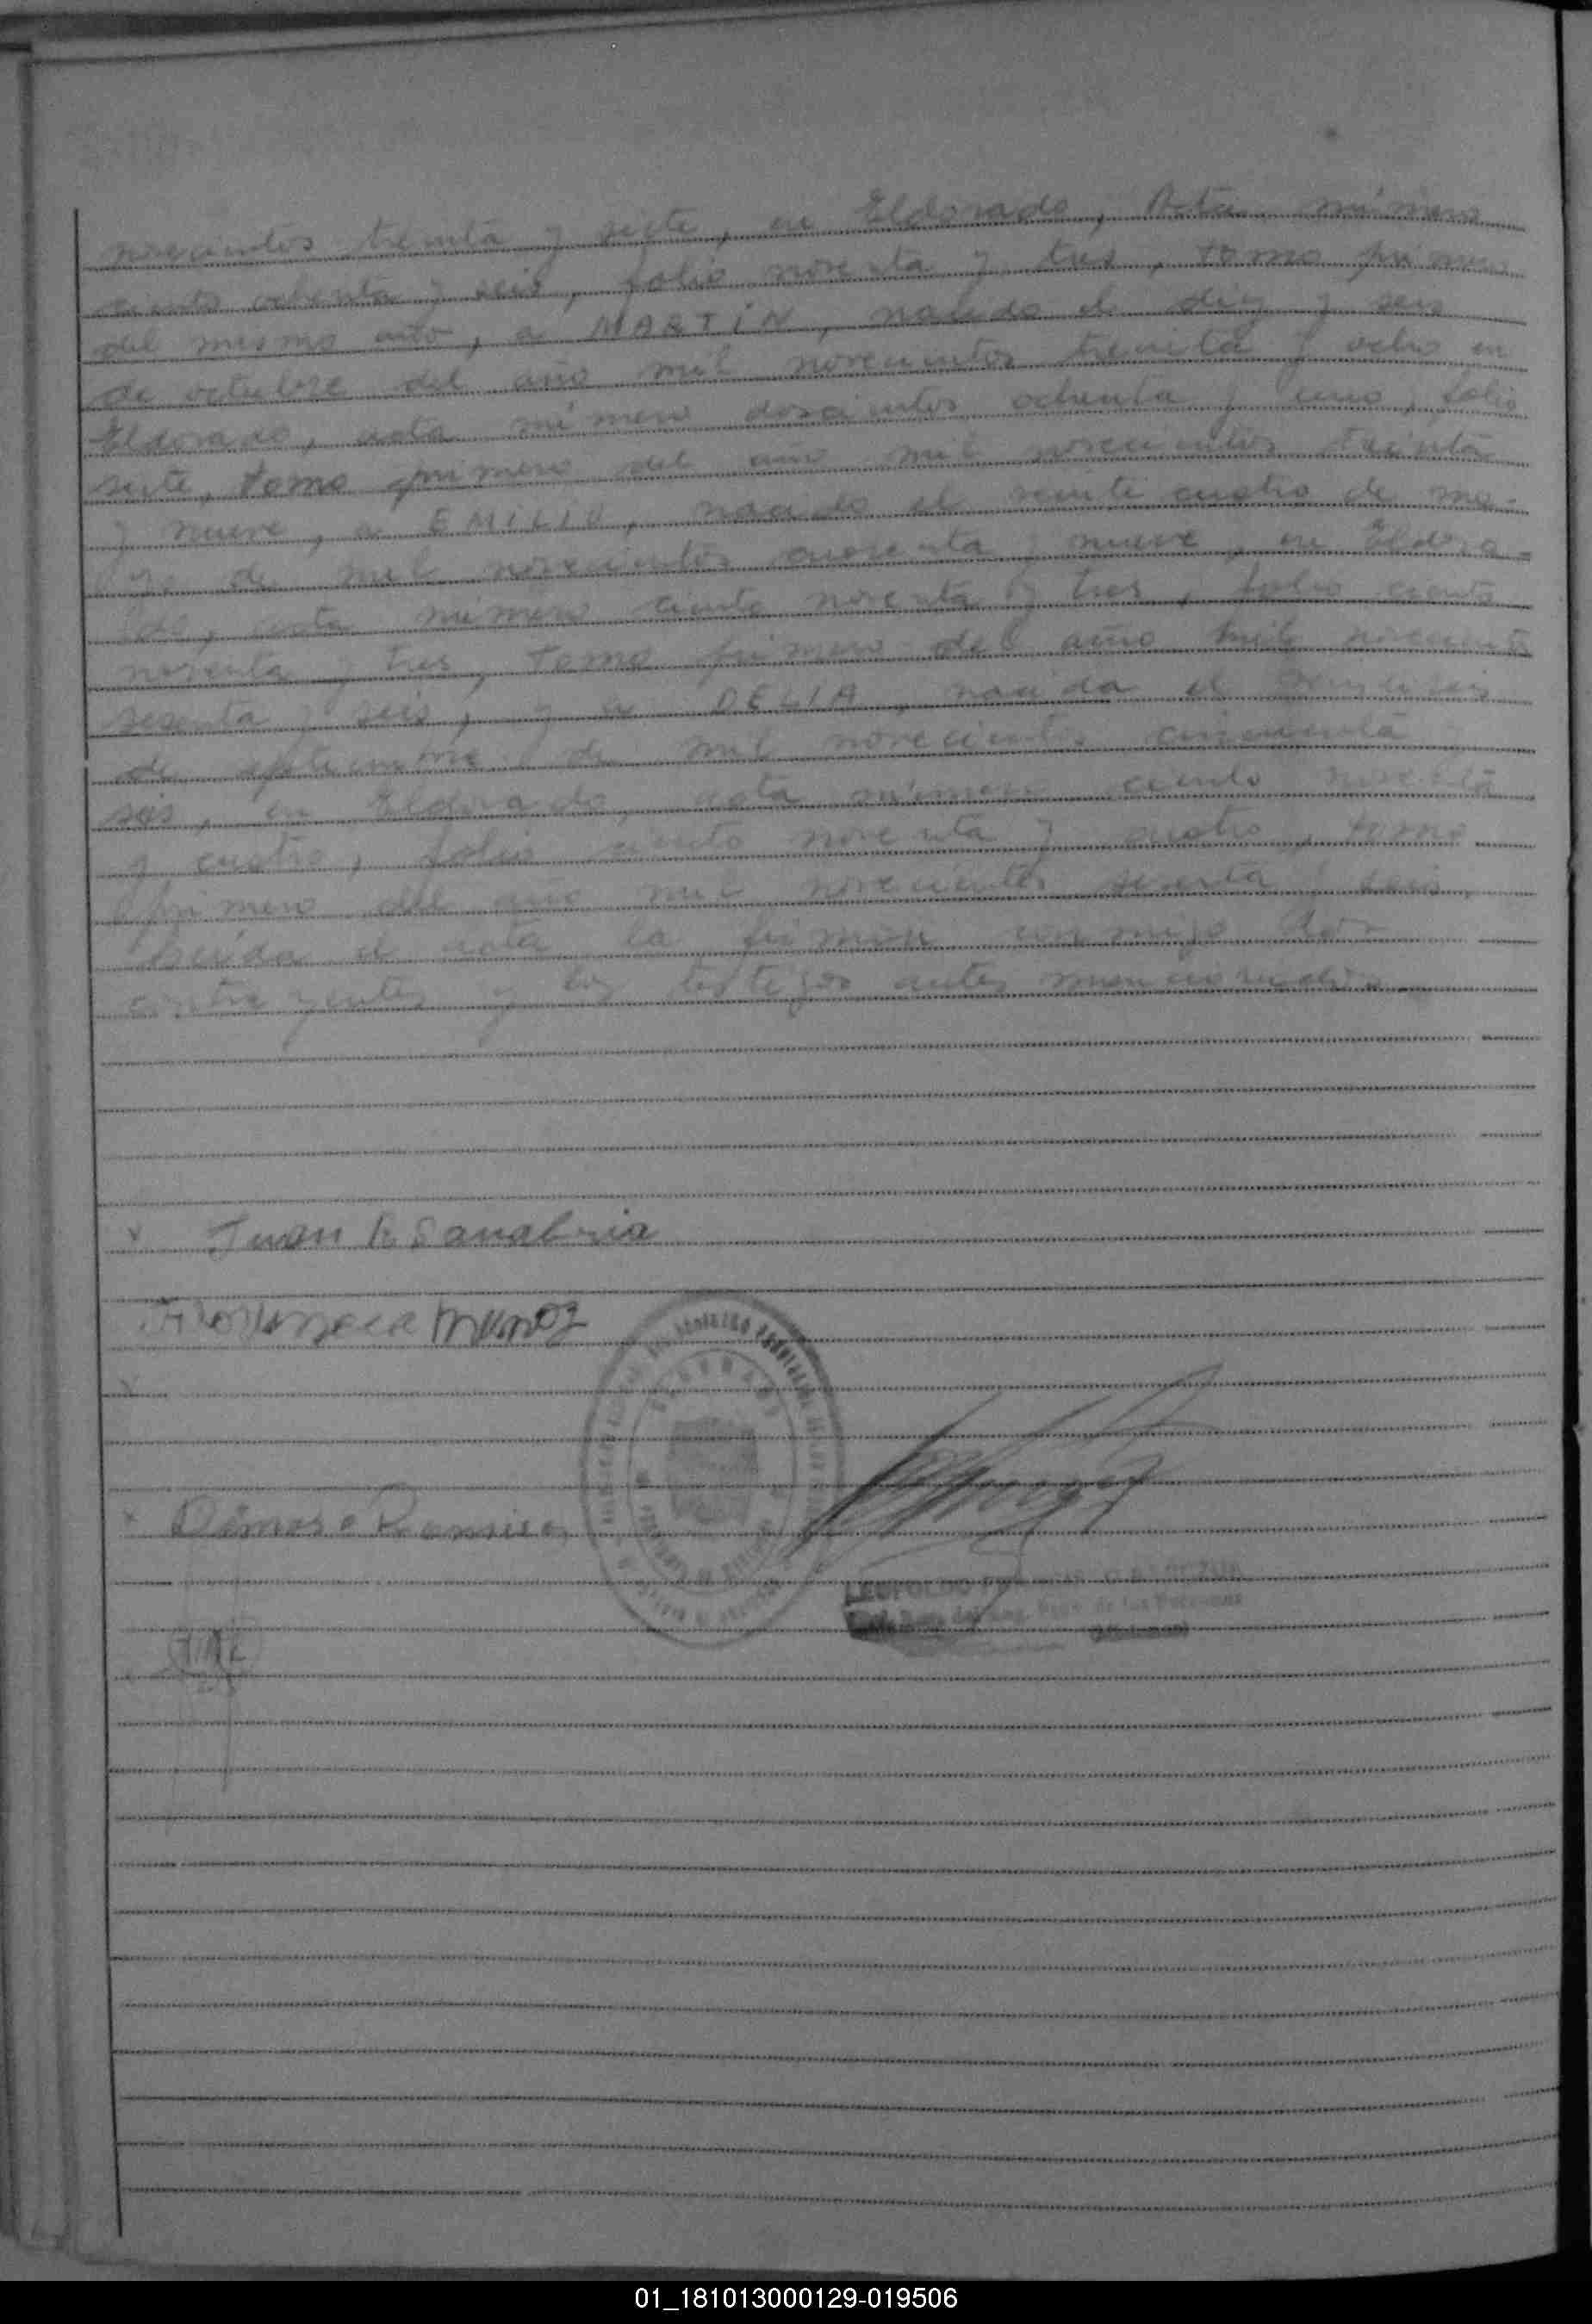 novecientos treinta y siete, en Eldorado, Acta número
ciento ochenta y seis, folio noventa y tres, tomo primero
del mismo año, a MARTIN, nacido el diez y seis
de octubre del año mil novecientos treinta y ocho en
Eldorado, acta número doscientos ochenta y uno, folio
siete, tomo primero del año mil novecientos treinta
y nueve, a EMILIO, nacido el veinticuatro de ma-
yo de mil novecientos cuarenta y nueve, en Eldora-
do, acta número ciento noventa y tres, folio ciento
noventa y tres, tomo primero del año mil novecientos
sesenta y seis, y a DELIA, nacida el
de septiembre de mil novecientos cincuenta y
seis, en Eldorado, acta número ciento noventa
y cuatro, folio ciento noventa y cuatro, tomo
primero del año mil novecientos sesenta y seis,
Leída el acta la firman conmigo los
contrayentes y los testigos antes mencionados
Juan R Sanabria
Muñoz
Damaso Ramirez
LEOPOLDO
01_181013000129-019506